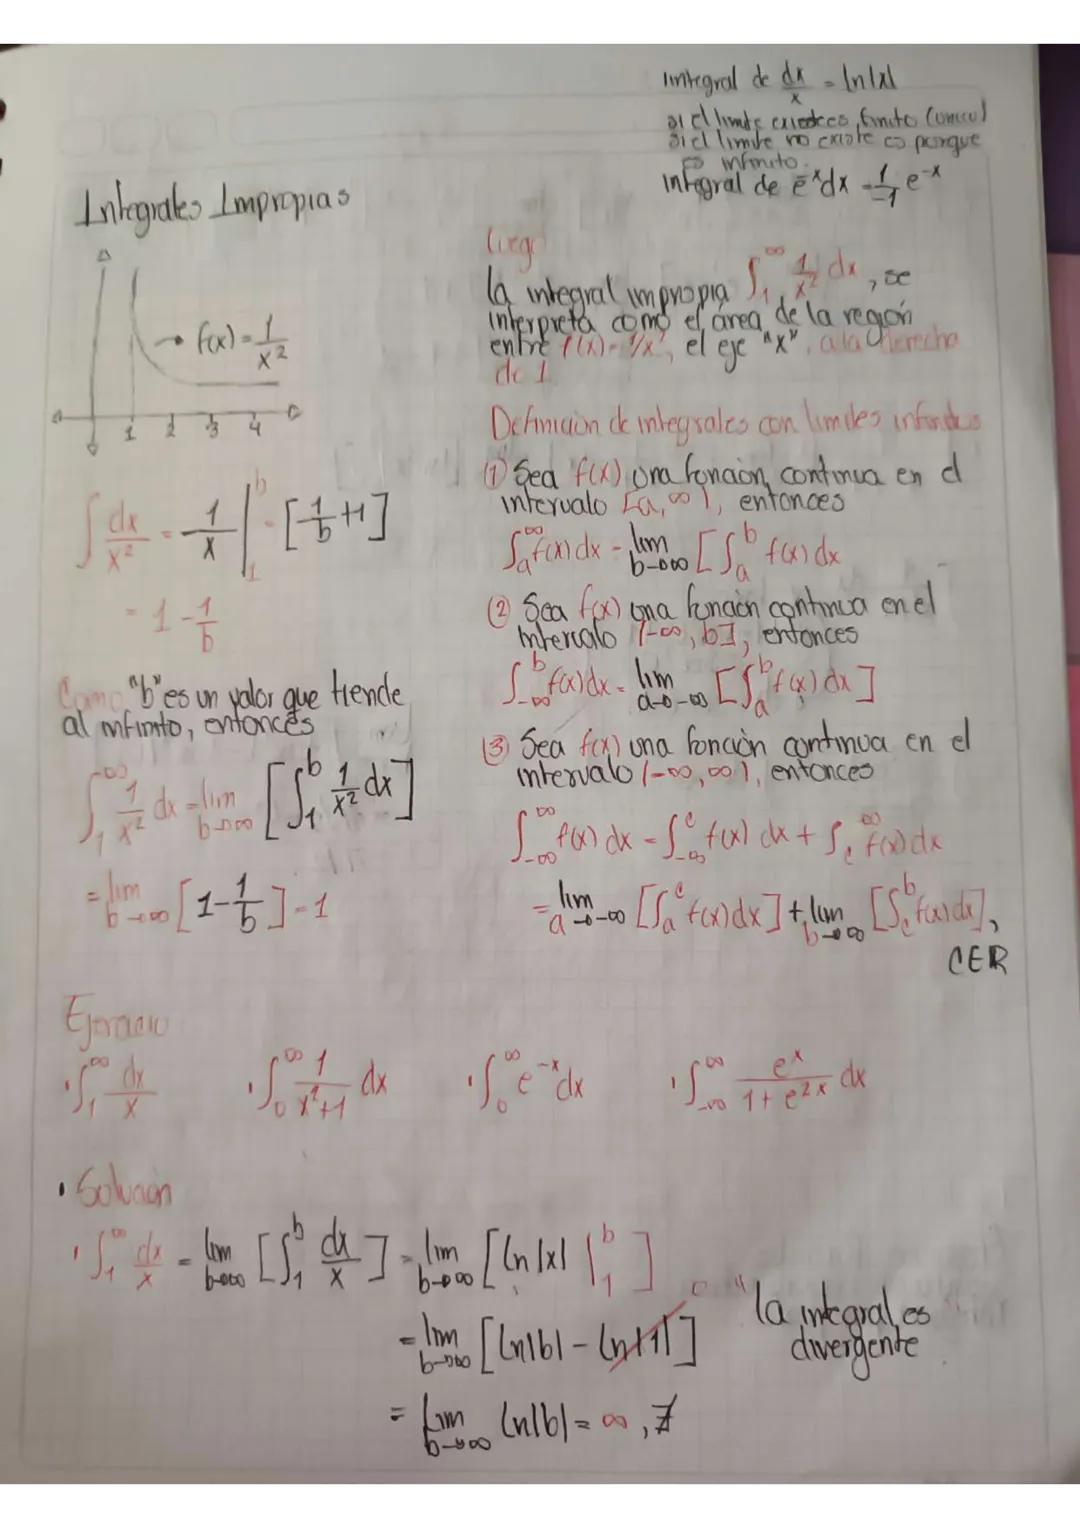 Integral de dx/x = ln|x|
si el limite existe es finito (único)
si el limite no existe es porque
es infinito.
Integral de e^-x dx = 1/-1 e^-x
Integrales Impropias
f(x) = 1/x²
1 2 3 4
∫ dx/x² = -1/x |₁^b = [-1/b +1]
= 1 - 1/b
Como "b" es un valor que tiende
al infinito, entonces
∫₁^∞ 1/x² dx = lim b→∞ [∫₁^b 1/x² dx]
= lim b→∞ [1 - 1/b] = 1
Luego
la integral impropia ∫₁^∞ 1/x² dx, se
interpreta como el área de la región
entre f(x) = 1/x², el eje "x", a la derecha
de 1
Definición de integrales con limites infinitos
(1) Sea f(x) una función continua en el
intervalo [a, ∞), entonces
∫ₐ^∞ f(x) dx = lim b→∞ [∫ₐ^b f(x) dx
(2) Sea f(x) una función continua en el
intervalo (-∞, b], entonces
∫₋∞^b f(x) dx = lim a→-∞ [∫ₐ^b f(x) dx]
(3) Sea f(x) una función continua en el
intervalo (-∞, ∞), entonces
∫₋∞^∞ f(x) dx = ∫₋∞^c f(x) dx + ∫c^∞ f(x) dx
= lim a→-∞ [∫ₐ^c f(x) dx] + lim b→∞ [∫c^b f(x) dx],
CER
Ejercicio
· ∫₁^∞ dx/x · ∫₀^∞ 1/x²+1 dx · ∫₀^∞ e^-x dx · ∫₋∞^∞ e^x/1+e^2x dx
· Solución
· ∫₁^∞ dx/x = lim b→∞ [∫₁^b dx/x] = lim b→∞ [ln|x| |₁^b]
= lim b→∞ [ln|b| - ln|1|] 0
"la integral es
divergente"
= lim b→∞ ln|b| = ∞, ∄